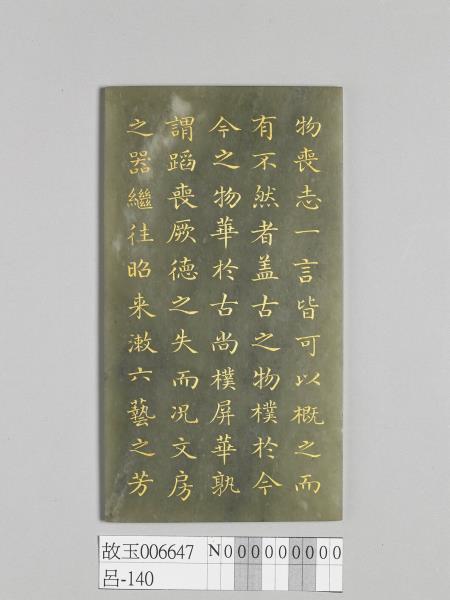 物喪志一言皆可以概之而
有不然者盖古之物樸於今
今之物華於古尚樸屏華孰
謂蹈喪厥德之失而况文房
之器繼往昭来漱六藝之芳
故玉006647
N000000000
呂-140